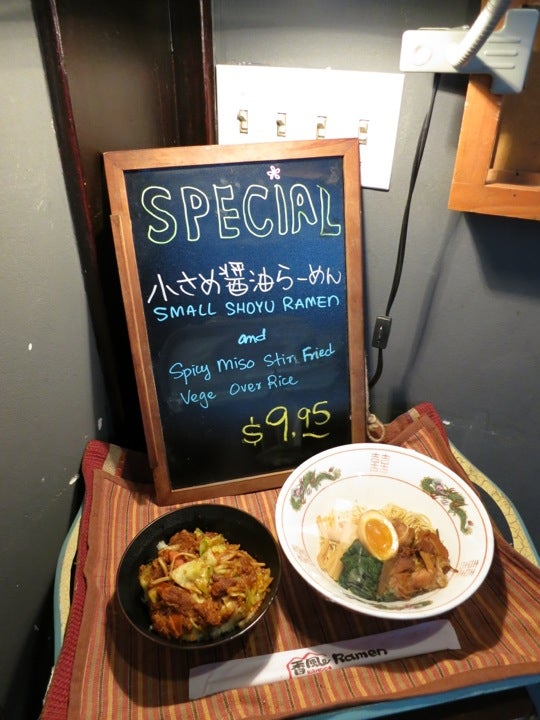 SPECIAL
小さめ醤油らーめん
SMALL SHOYU RAMEN
and
Spicy Miso Stir Fried
Vege Over Rice
$9.95
囍
Ramen